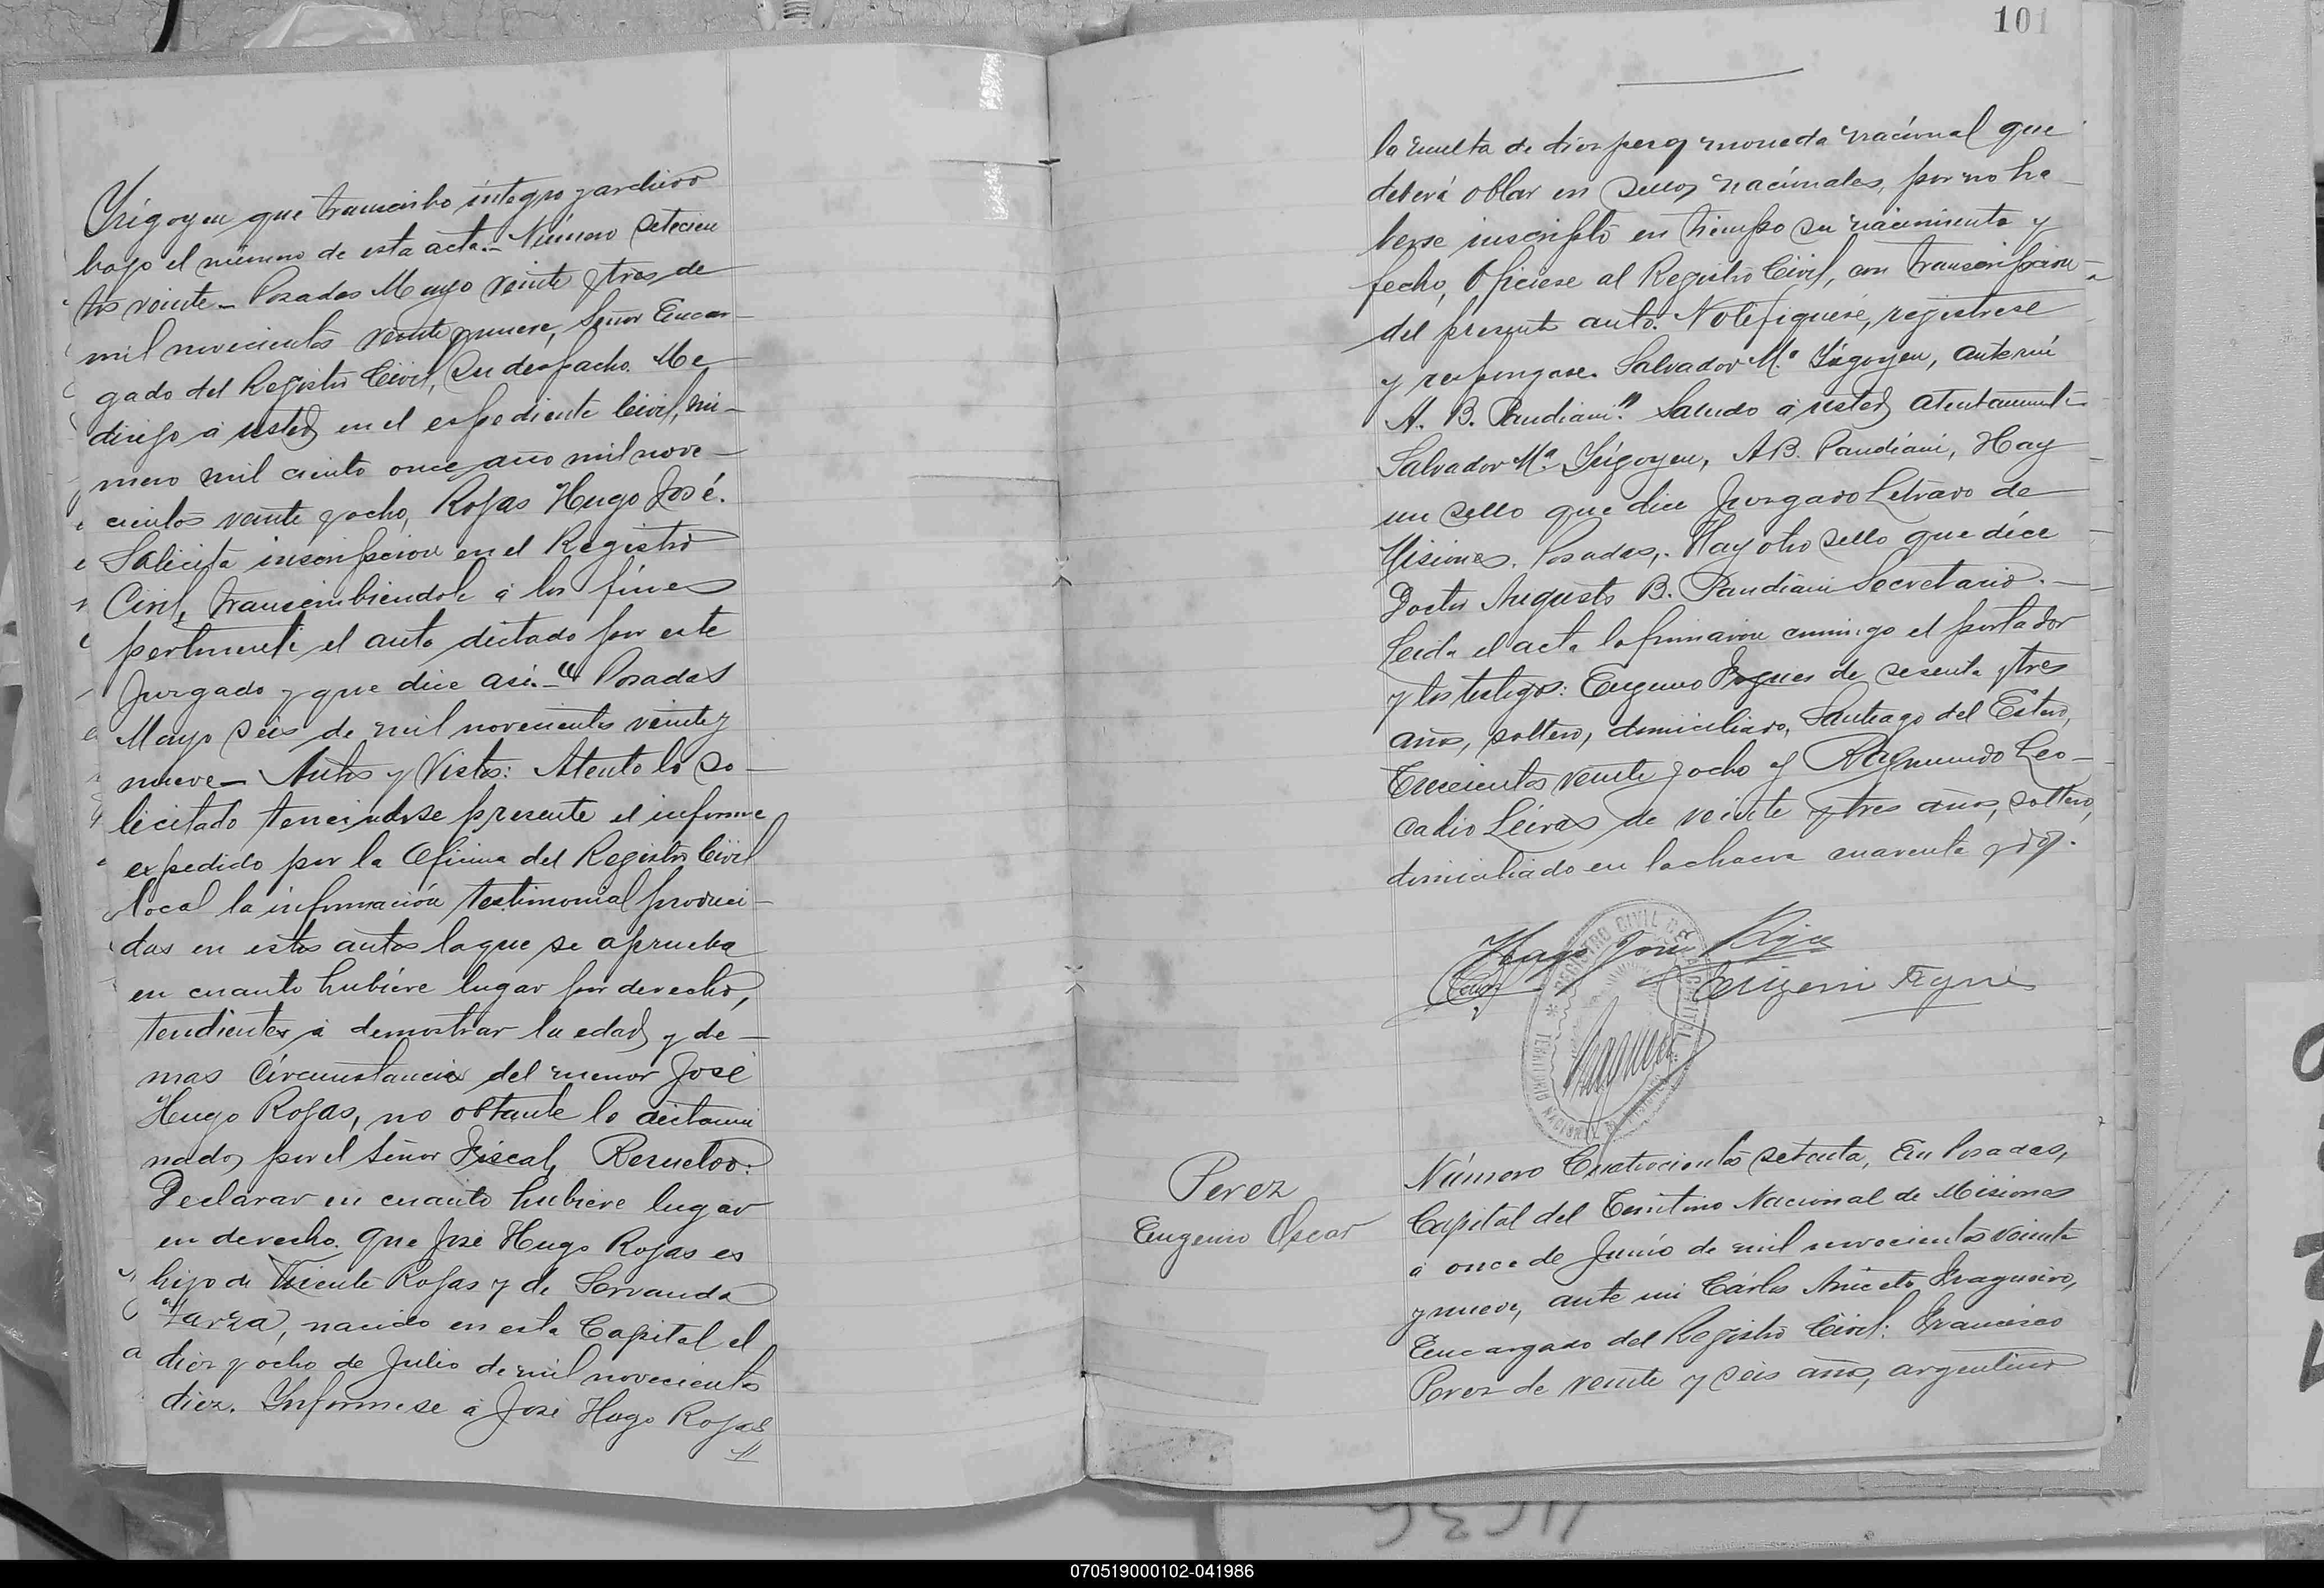 Yrigoyen que transcribo integro y archivo
bajo el número de esta acta.- Número Setecien
tos veinte - Posadas Mayo veinte y tres de
mil novecientos veinte y nueve, Señor Encar-
gado del Registro Civil, Su despacho. Me
dirijo á usted en el expediente Civil, nú-
mero mil ciento once año mil nove-
cientos veinte y ocho, Rojas Hugo José.
Solicita inscripcion en el Registro
Civil, transcribiendole á los fines
pertinente el auto dictado por este
Juzgado y que dice asi.- "Posadas
Mayo seis de mil novecientos veinte y
nueve - Autos y Vistos: Atento lo so-
licitado teneindose presente el informe
expedido por la Oficina del Registro Civil
local la información testimonial produci-
das en estos autos la que se aprueba
en cuanto hubiere lugar por derecho,
tendientes á demostrar la edad y de-
mas circunstancias del menor José
Hugo Rojas, no obtante lo dictami
nado por el Señor Fiscal, Resuelvo:
Declarar en cuanto hubiere lugar
en derecho. Que José Hugo Rojas es
hijo de Vicente Rojas y de Servanda
Zarza, nacido en esta Capital el
diez y ocho de Julio de mil novecientos
diez. Informese á José Hugo Rojas
101
la multa de diez pesos moneda nacional que
deberá oblar en sellos nacionales, por no ha-
berse inscripto en tiempo su nacimiento y
fecho, Ofíciese al Registro Civil, con transcripcion
del presente auto. Notifiquese, registrese
y repongase. Salvador Mª Yrigoyen, ante mi
A. B. Pandiani" Saludo á usted atentamente
Salvador Mª Yrigoyen, A B. Pandiani, Hay
un sello que dice Juzgado Letrado de
Misiones. Posadas,. Hay otro sello que dice
Doctor Augusto B. Pandiani Secretario.-
Leida el acta la firmaron conmigo el portador
y los testigos: Eugenio de sesenta y tres
años, soltero, domiciliado, Santiago del Estero,
Trescientos veinte y ocho y Raymundo Leo-
cadio Leiras de veinte y tres años, soltero,
domiciliado en la chacra cuarenta y dos.
Hugo José Rojas
Eugenio
REGISTRO CIVIL DE LA CAPITAL
TERRITORIO NACIONAL DE MISIONES
Perez
Eugenio Oscar
Número Cuatrocientos setenta, En Posadas,
Capital del Territorio Nacional de Misiones
á once de Junio de mil novecientos veinte
y nueve, ante mi Cárlos Aniceto Fragueiro,
Encargado del Registro Civil: Francisco
Perez de veinte y seis años, argentino
070519000102-041986